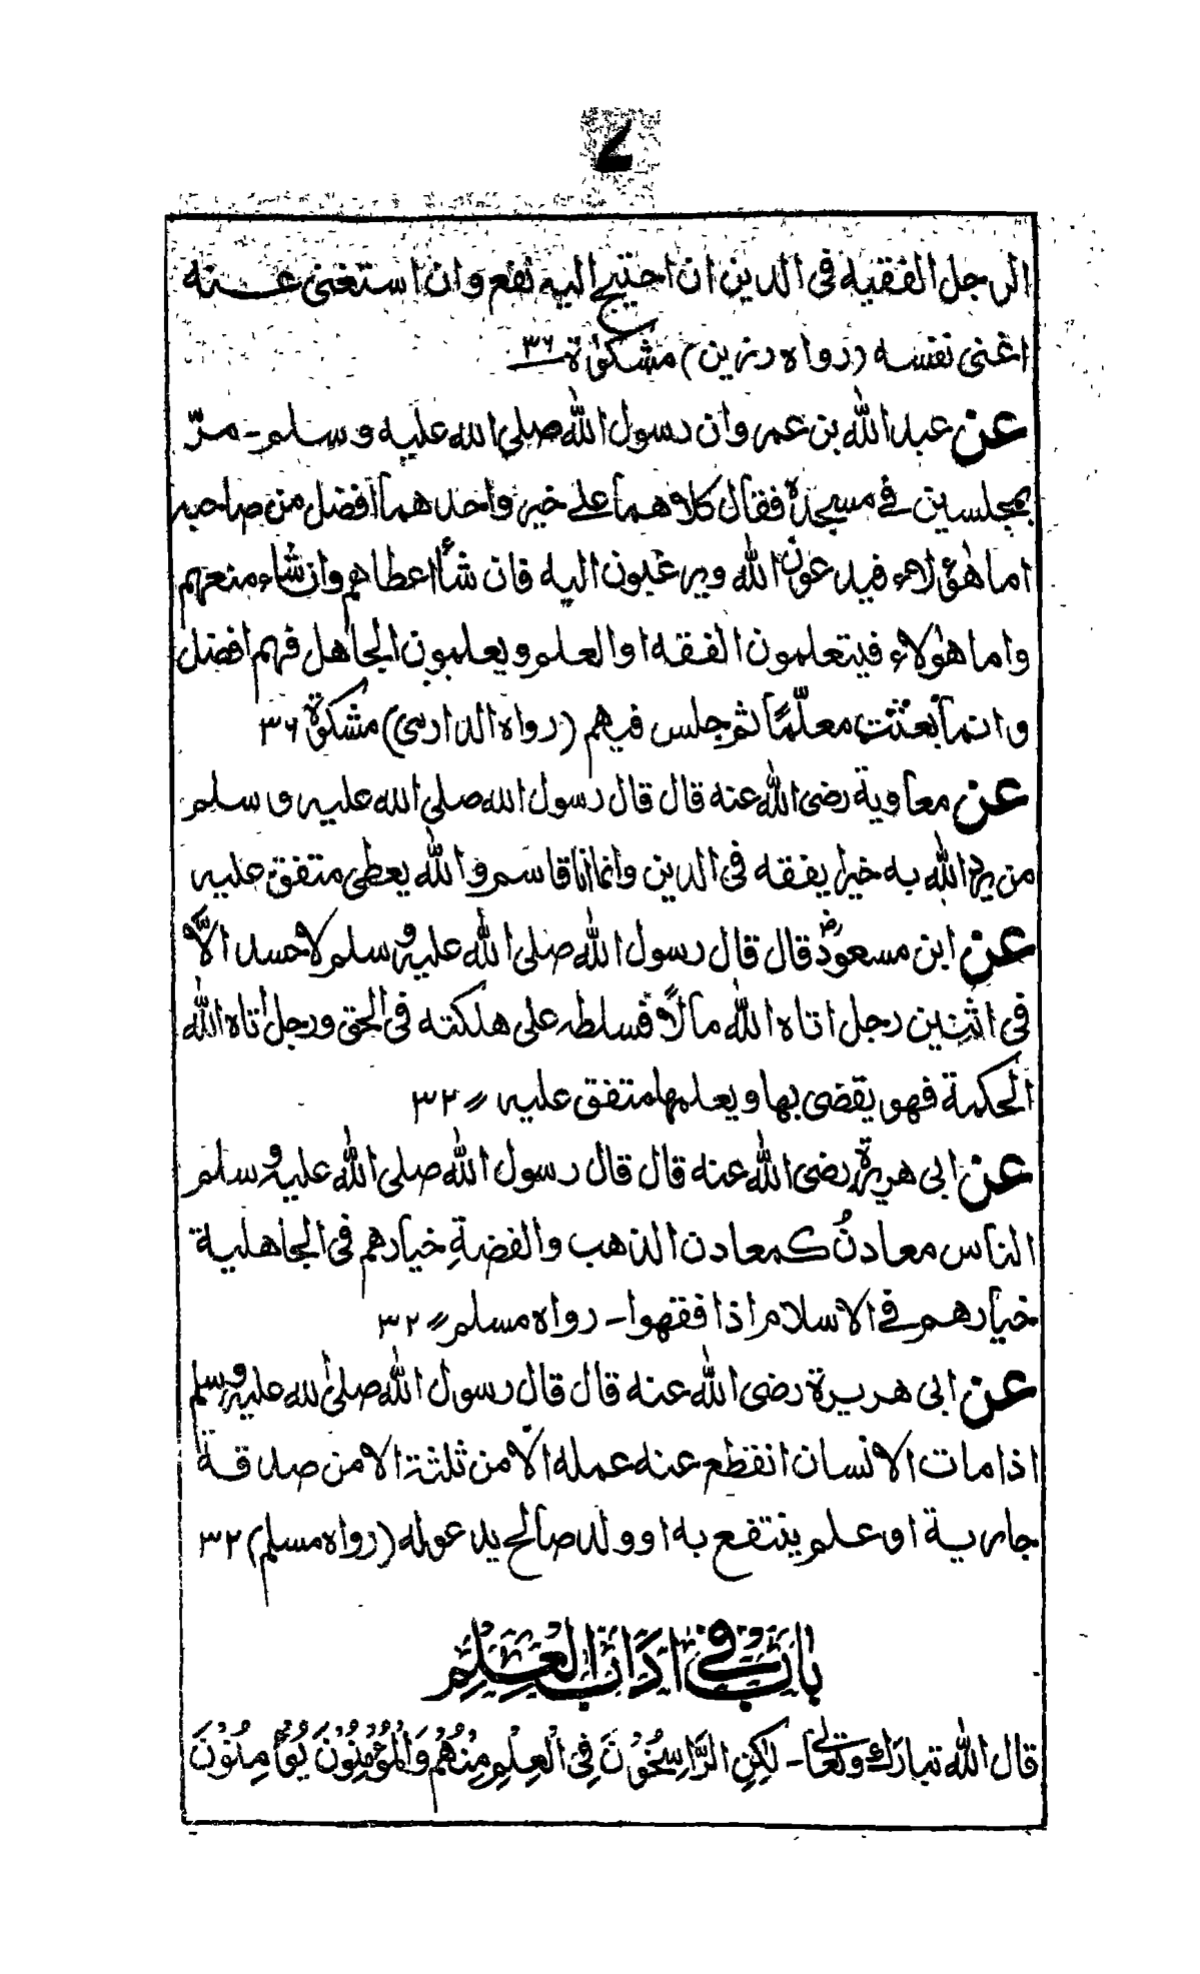 الرجل الفقيه فى الدين ان احتيج اليه نفع وان استغنى عنه
اغنى نفسه (رواه رزين) مشكوٰة ٣٦
عن عبد الله بن عمر وان رسول الله صلى الله عليه وسلم - مرّ
بمجلسين فى مسجدہ فقال كلاهما على خير واحدهما افضل من صاحبه
اما هٰؤلاء فيدعون الله ويرغبون اليه فان شأاعطاهم وان شاء منعهم
واما هٰؤلاء فيتعلمون الفقه او العلم ويعلمون الجاهل فهم افضل
وانما بعثت معلّمًا ثم جلس فيهم (رواه الدارمى) مشكوٰة ٣٦
عن معاوية رضى الله عنه قال قال رسول الله صلى الله عليه وسلم
من يرد الله به خيرا يفقه فى الدين وانما انا قاسم والله يعطى متفق عليه
عن ابن مسعودؓ قال قال رسول الله صلى الله عليه وسلم لا حسد الاّ
فى اثنين رجل اتاه الله مالاً فسلطه على هلكته فى الحق ورجل اتاه الله
الحكمة فهو يقضى بها ويعلمها متفق عليه ٫٫ ٣٢
عن ابى هريرة رضى الله عنه قال قال رسول الله صلى الله عليه وسلم
الناس معادنُ كمعادن الذهب والفضةِ خيارهم فى الجاهلية
خيارهم فى الاسلام اذا فقهوا - رواه مسلم ٫٫ ٣٢
عن ابى هريرة رضى الله عنه قال قال رسول الله صلى الله عليه وسلم
اذا مات الانسان انقطع عنه عمله الاّ من ثلثة الا من صدقة
جارية او علم ينتفع به او ولد صالح يدعو له (رواه مسلم) ٣٢
باب فى اداب العلم
قال الله تبارك وتعالىٰ - لٰكِنِ الرَّاسِخُوْنَ فِى الْعِلْمِ مِنْهُمْ وَالْمُؤْمِنُوْنَ يُؤْمِنُوْنَ